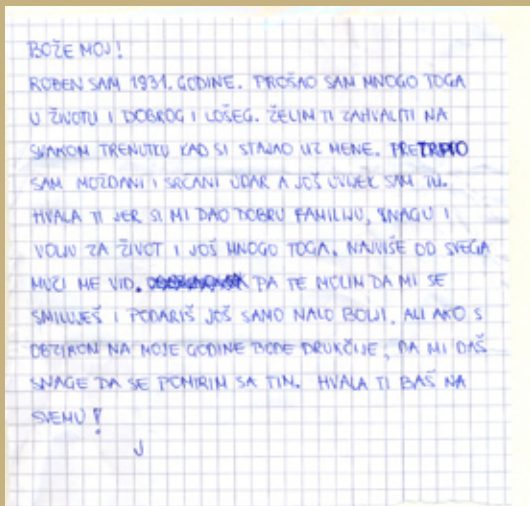 BOŽE MOJ!
ROĐEN SAM 1931. GODINE. PROŠAO SAM MNOGO TOGA
U ŽIVOTU I DOBROG I LOŠEG. ŽELIM TI ZAHVALITI NA
SVAKOM TRENUTKU KAD SI STAJAO UZ MENE. PRETRPIO
SAM MOŽDANI I SRČANI UDAR A JOŠ UVIJEK SAM TU.
HVALA TI JER SI MI DAO DOBRU FAMILIJU, SNAGU I
VOLJU ZA ŽIVOT I JOŠ MNOGO TOGA. NAJVIŠE OD SVEGA
MUČI ME VID. PA TE MOLIM DA MI SE
SMILUJEŠ I PODARIŠ JOŠ SAMO MALO BOLJI. ALI AKO S
OBZIROM NA MOJE GODINE BUDE DRUKČIJE, DA MI DAŠ
SNAGE DA SE POMIRIM SA TIM. HVALA TI BAŠ NA
SVEMU!
J